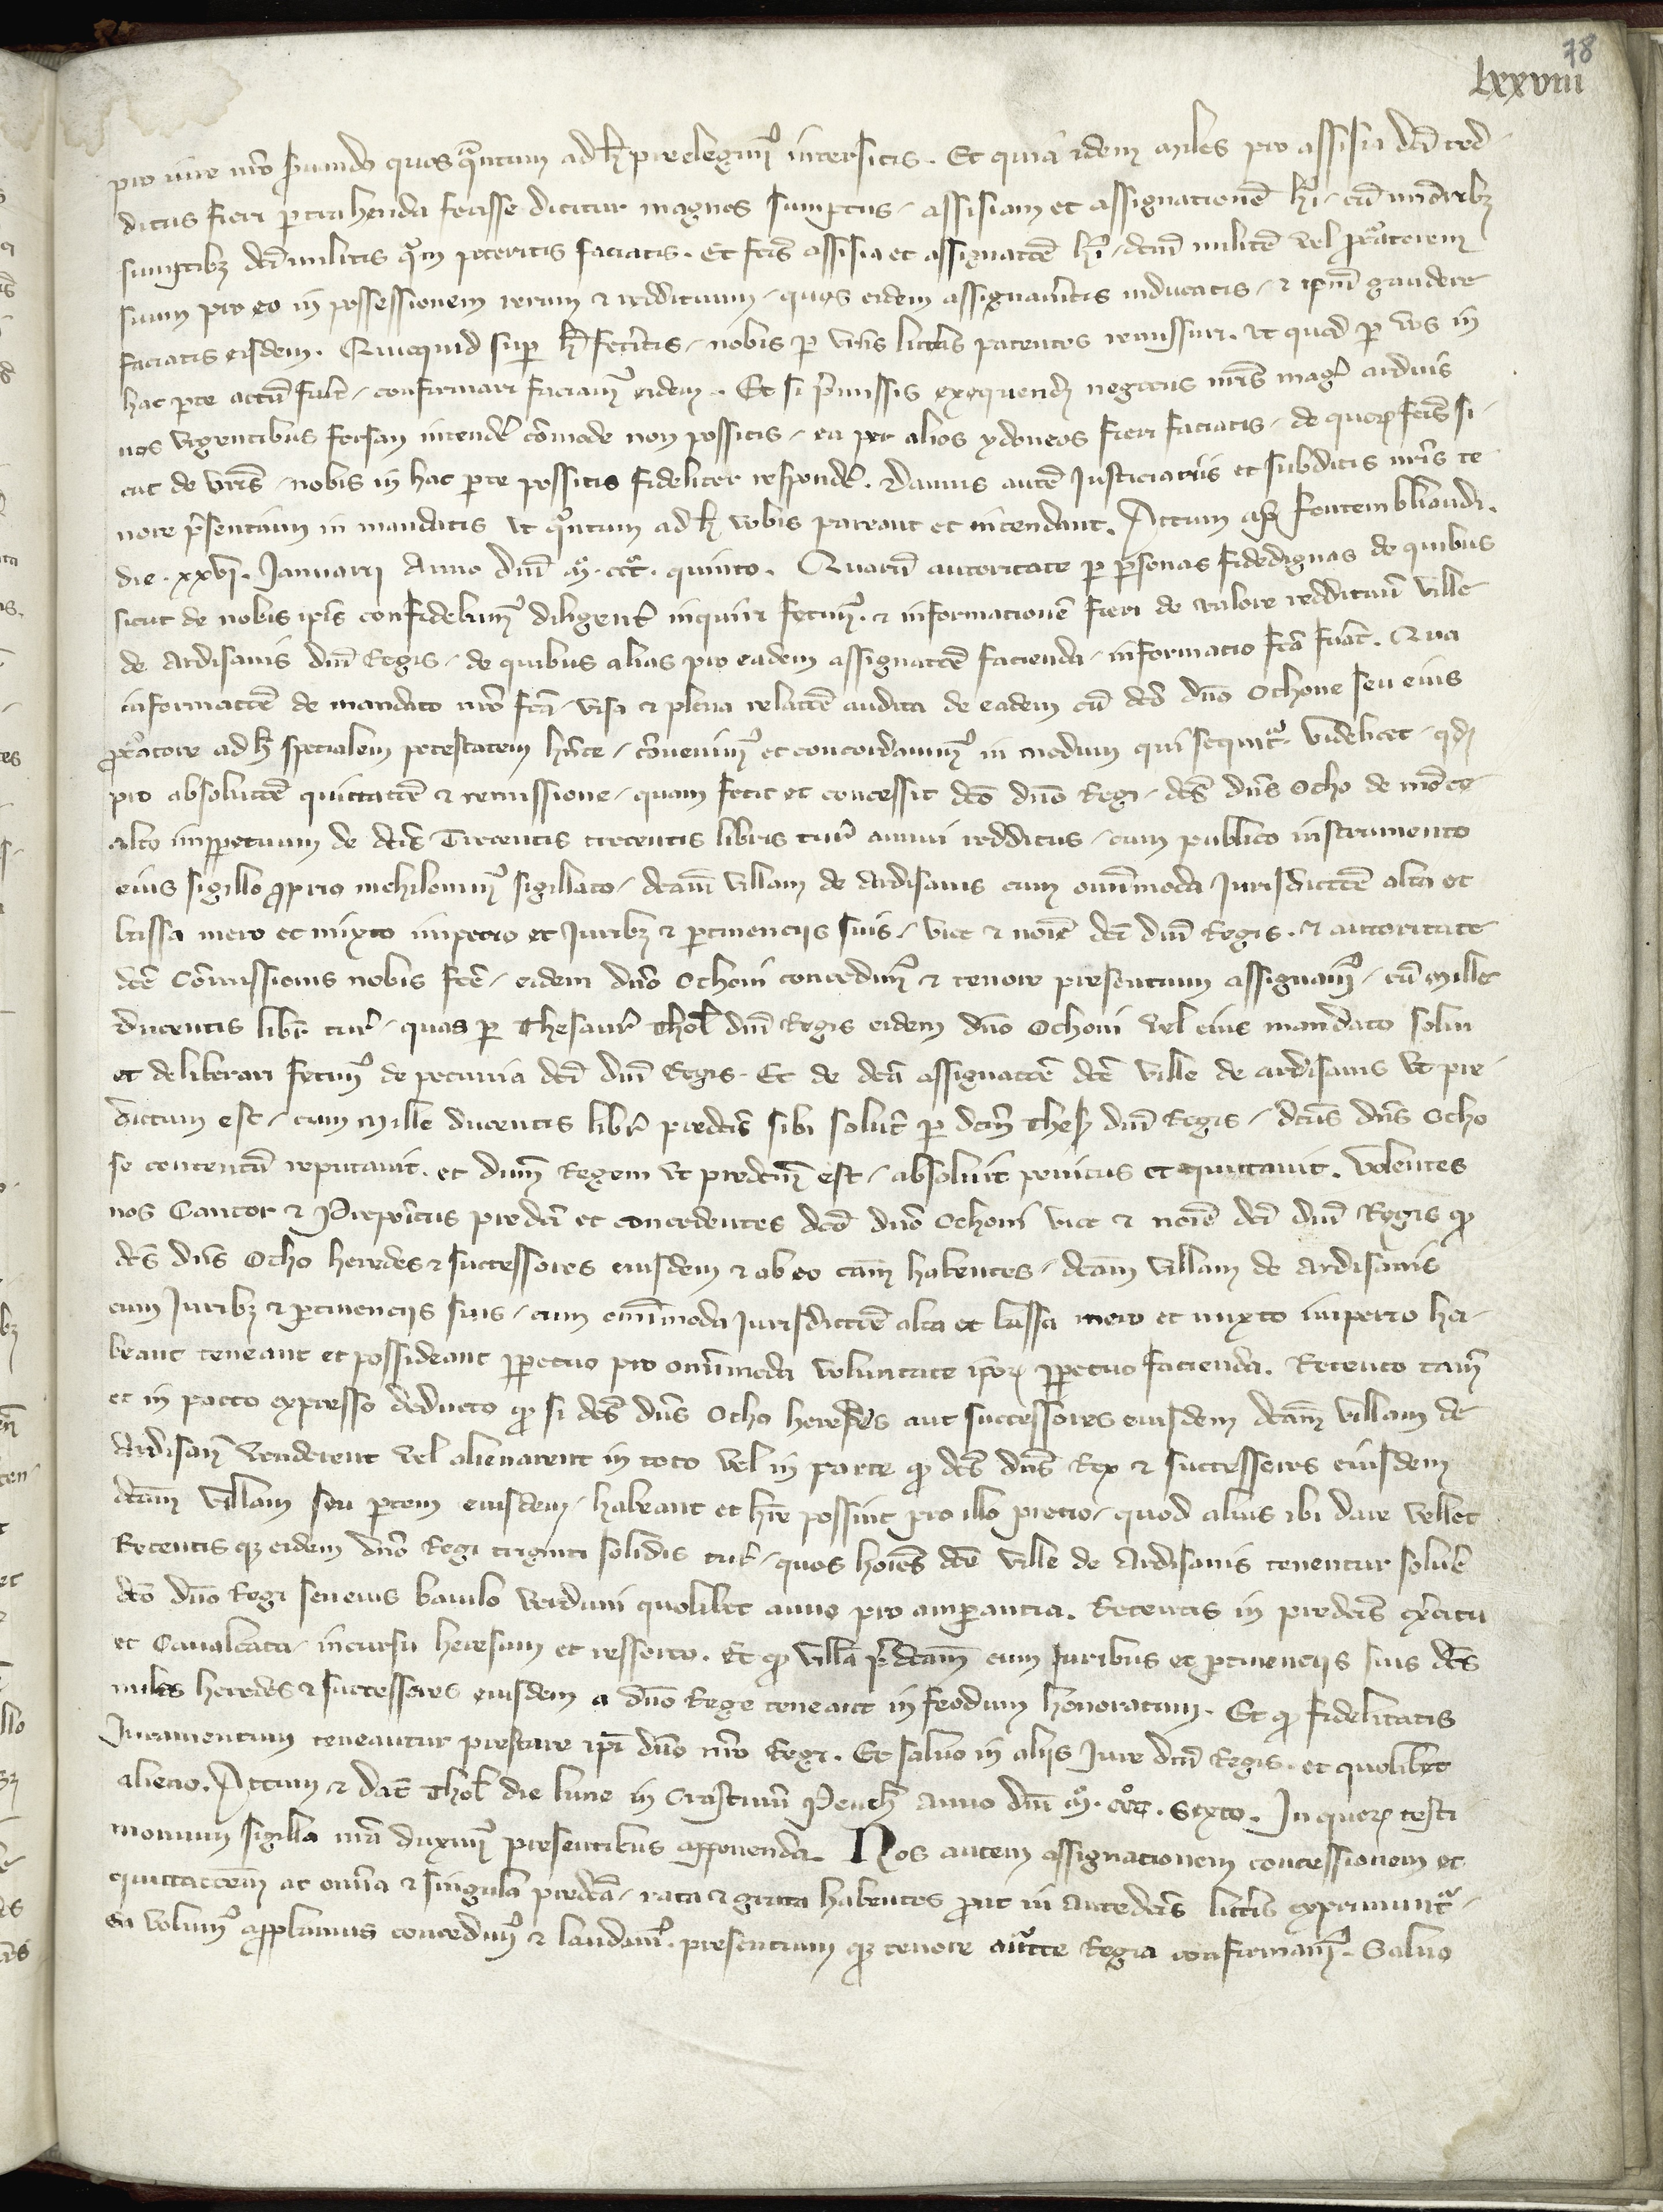 78
lxxviii
pro iure nr̄o ẜuando quos q̄ntum ad h̄ preelegimꝰ intersitis. Et quia idem miles pro assisia dc̄i red
ditus fieri ꝑtrahenda fecisse dicitur magnos sumptus, assisiam et assignationē h̄i, cū minoribꝫ
sumptibꝫ dc̄i militis qͣm poteritis faciatis. Et fc̄is assisia et assignatōē h̄i, dcm̄ militē vel ꝓcͣatorem
suum pro eo in possessionem rerum ⁊ reddituum, quos eidem assignaueritis inducatis, ⁊ ip̄m gaudere
faciatis eisdem. Quicquid suꝑ h̄ fec̄itis, nobis ꝑ vr̄as litt̄as patentes remissuri. ut quod ꝑ vos in
hac ꝑte actū fuīt, confirmari faciamꝰ eidem. Et si p̄missis exequend̄ negociis nr̄is magis arduis
nos vrgentibus forsan intendē cōmode non possitis, ea per alios ydoneos fieri faciatis, de quoꝝ fc̄is si-
cut de vr̄is, nobis in hac ꝑte possitis fideliter respondē. Damus autē Justiciariis et subditis nr̄is te
nore p̄sentium in mandatis vt qͣntum ad h̄ vobis pareant et intendant. Actum apud Fontembliaudi.
die. xxvj. Januarij Anno dn̄i mͦ. cccͦ. quinto. Quarū autoritate ꝑ ꝑsonas fidedignas de quibus
sicut de nobis ip̄is confidebamꝰ diligent̄ inquiri fecimꝰ. ⁊ informationē fieri de valore reddituū ville
de Ardisanis dn̄i Regis, de quibus alias pro eadem assignatōē facienda, informatio fc̄a fuāt. Qua
informatōē de mandato nr̄o fc̄a, visa ⁊ plena relatōē audita de eadem cū dc̄o dn̄o Othone seu eius
ꝓcͣatore ad h̄ specialem potestatem hn̄te, cōuenimꝰ et concordauimꝰ in modum qui sequit̄ᷓ. Videlicet, qd̄
pro absolutōē quittatōē ⁊ remissione, quam fecit et concessit dc̄o dn̄o Regi, dc̄s dn̄s Otho de mōte
alto imꝑpetuum de dc̄is Trecentis trecentis libris tur̄ annui redditus, cum publico instrumento
eius sigillo ꝓprio nichilominꝰ sigillato, dcam̄ villam de Ardisanis cum om̄imoda Jurisdictōē alta et
bassa mero et mixto imperio et Juribꝫ ⁊ ꝑtinenciis suis, vice ⁊ noīe dc̄i dn̄i Regis. ⁊ autoritate
dc̄e Cōmissionis nobis fc̄e, eidem dn̄o Othoni concedimꝰ ⁊ tenore presentium assignamꝰ, cū Mille
ducentis libr̄ tur̄, quas ꝑ Thesaur̄ Thol̄ dn̄i Regis eidem dn̄o Othoni vel eius mandato solui
et deliberari fecimꝰ de pecunia dc̄i dn̄i Regis. Et de dc̄a assignatōē dc̄e ville de Ardisanis vt pre-
dictum est, cum Mille ducentis libr̄ predc̄is sibi solut̄ ꝑ dcm̄ Thes̄ dn̄i Regis, dc̄us dn̄s Otho
se contentū reputauit. et dn̄m Regem vt predcm̄ est, absoluit penitus et quittauit. Volentes
nos Cantor ⁊ Prepōitus predc̄i et concedentes dc̄o dn̄o Othoni vice ⁊ noīe dc̄i dn̄i Regis ꝙ
dc̄s dn̄s Otho heredes ⁊ successores eiusdem ⁊ ab eo cām habentes, dcām villam de Ardisanis
cum Juribꝫ ⁊ ꝑtinenciis suis, cum om̄imoda Jurisdictōē alta et bassa mero et mixto imperio ha-
beant teneant et possideant ꝑpetuo pro om̄imoda voluntate ip̄oꝝ ꝑpetuo facienda. Retento tam̄
et in pacto expresso deducto ꝙ si dc̄s dn̄s Otho heredes aut successores eiusdem dcām villam de
Ardisan̄ venderent vel alienarent in toto vel in parte ꝙ dc̄s dn̄s Rex ⁊ successores eiusdem
dcām villam seu ꝑtem eiusdem, habeant et hr̄e possint pro illo precio, quod alius ibi dare vellet
Retentis qꝫ eidem dn̄o Regi triginta solidis tur̄, quos hoīes dc̄e ville de Ardisanis tenentur soluē
dc̄o dn̄o Regi seu eius baiulo Verduni quolibet anno pro amꝑancia. Retentis in predc̄is ex̄citu
et Caualcata, incursu heresum et ressorto. Et ꝙ villā p̄dcām cum Juribus et ꝑtinenciis suis dc̄s
miles heredes ⁊ successores eiusdem a dn̄o Rege teneant in feodum honoratum. Et ꝙ fidelitatis
Juramentum teneantur prestare ip̄i dn̄o nr̄o Regi. Et saluo in aliis Jure dc̄i Regis. et quolibet
alieno. Actum ⁊ dat̄ Thol̄ die lune in Crastinū Penth̄ anno dn̄i mͦ. cccͦ. Sexto. In quoꝝ testi
monium sigilla nr̄a duximꝰ presentibus apponenda. Nos autem assignationem concessionem et
quittatōēm ac om̄ia ⁊ singula predc̄a, rata ⁊ grata habentes ꝓut in antedc̄is litt̄is exprimunt̄ᷓ,
ea volumꝰ approbamus concedimꝰ ⁊ laudamꝰ. presentium qꝫ tenore auct̄te Regia confirmamꝰ. Saluo